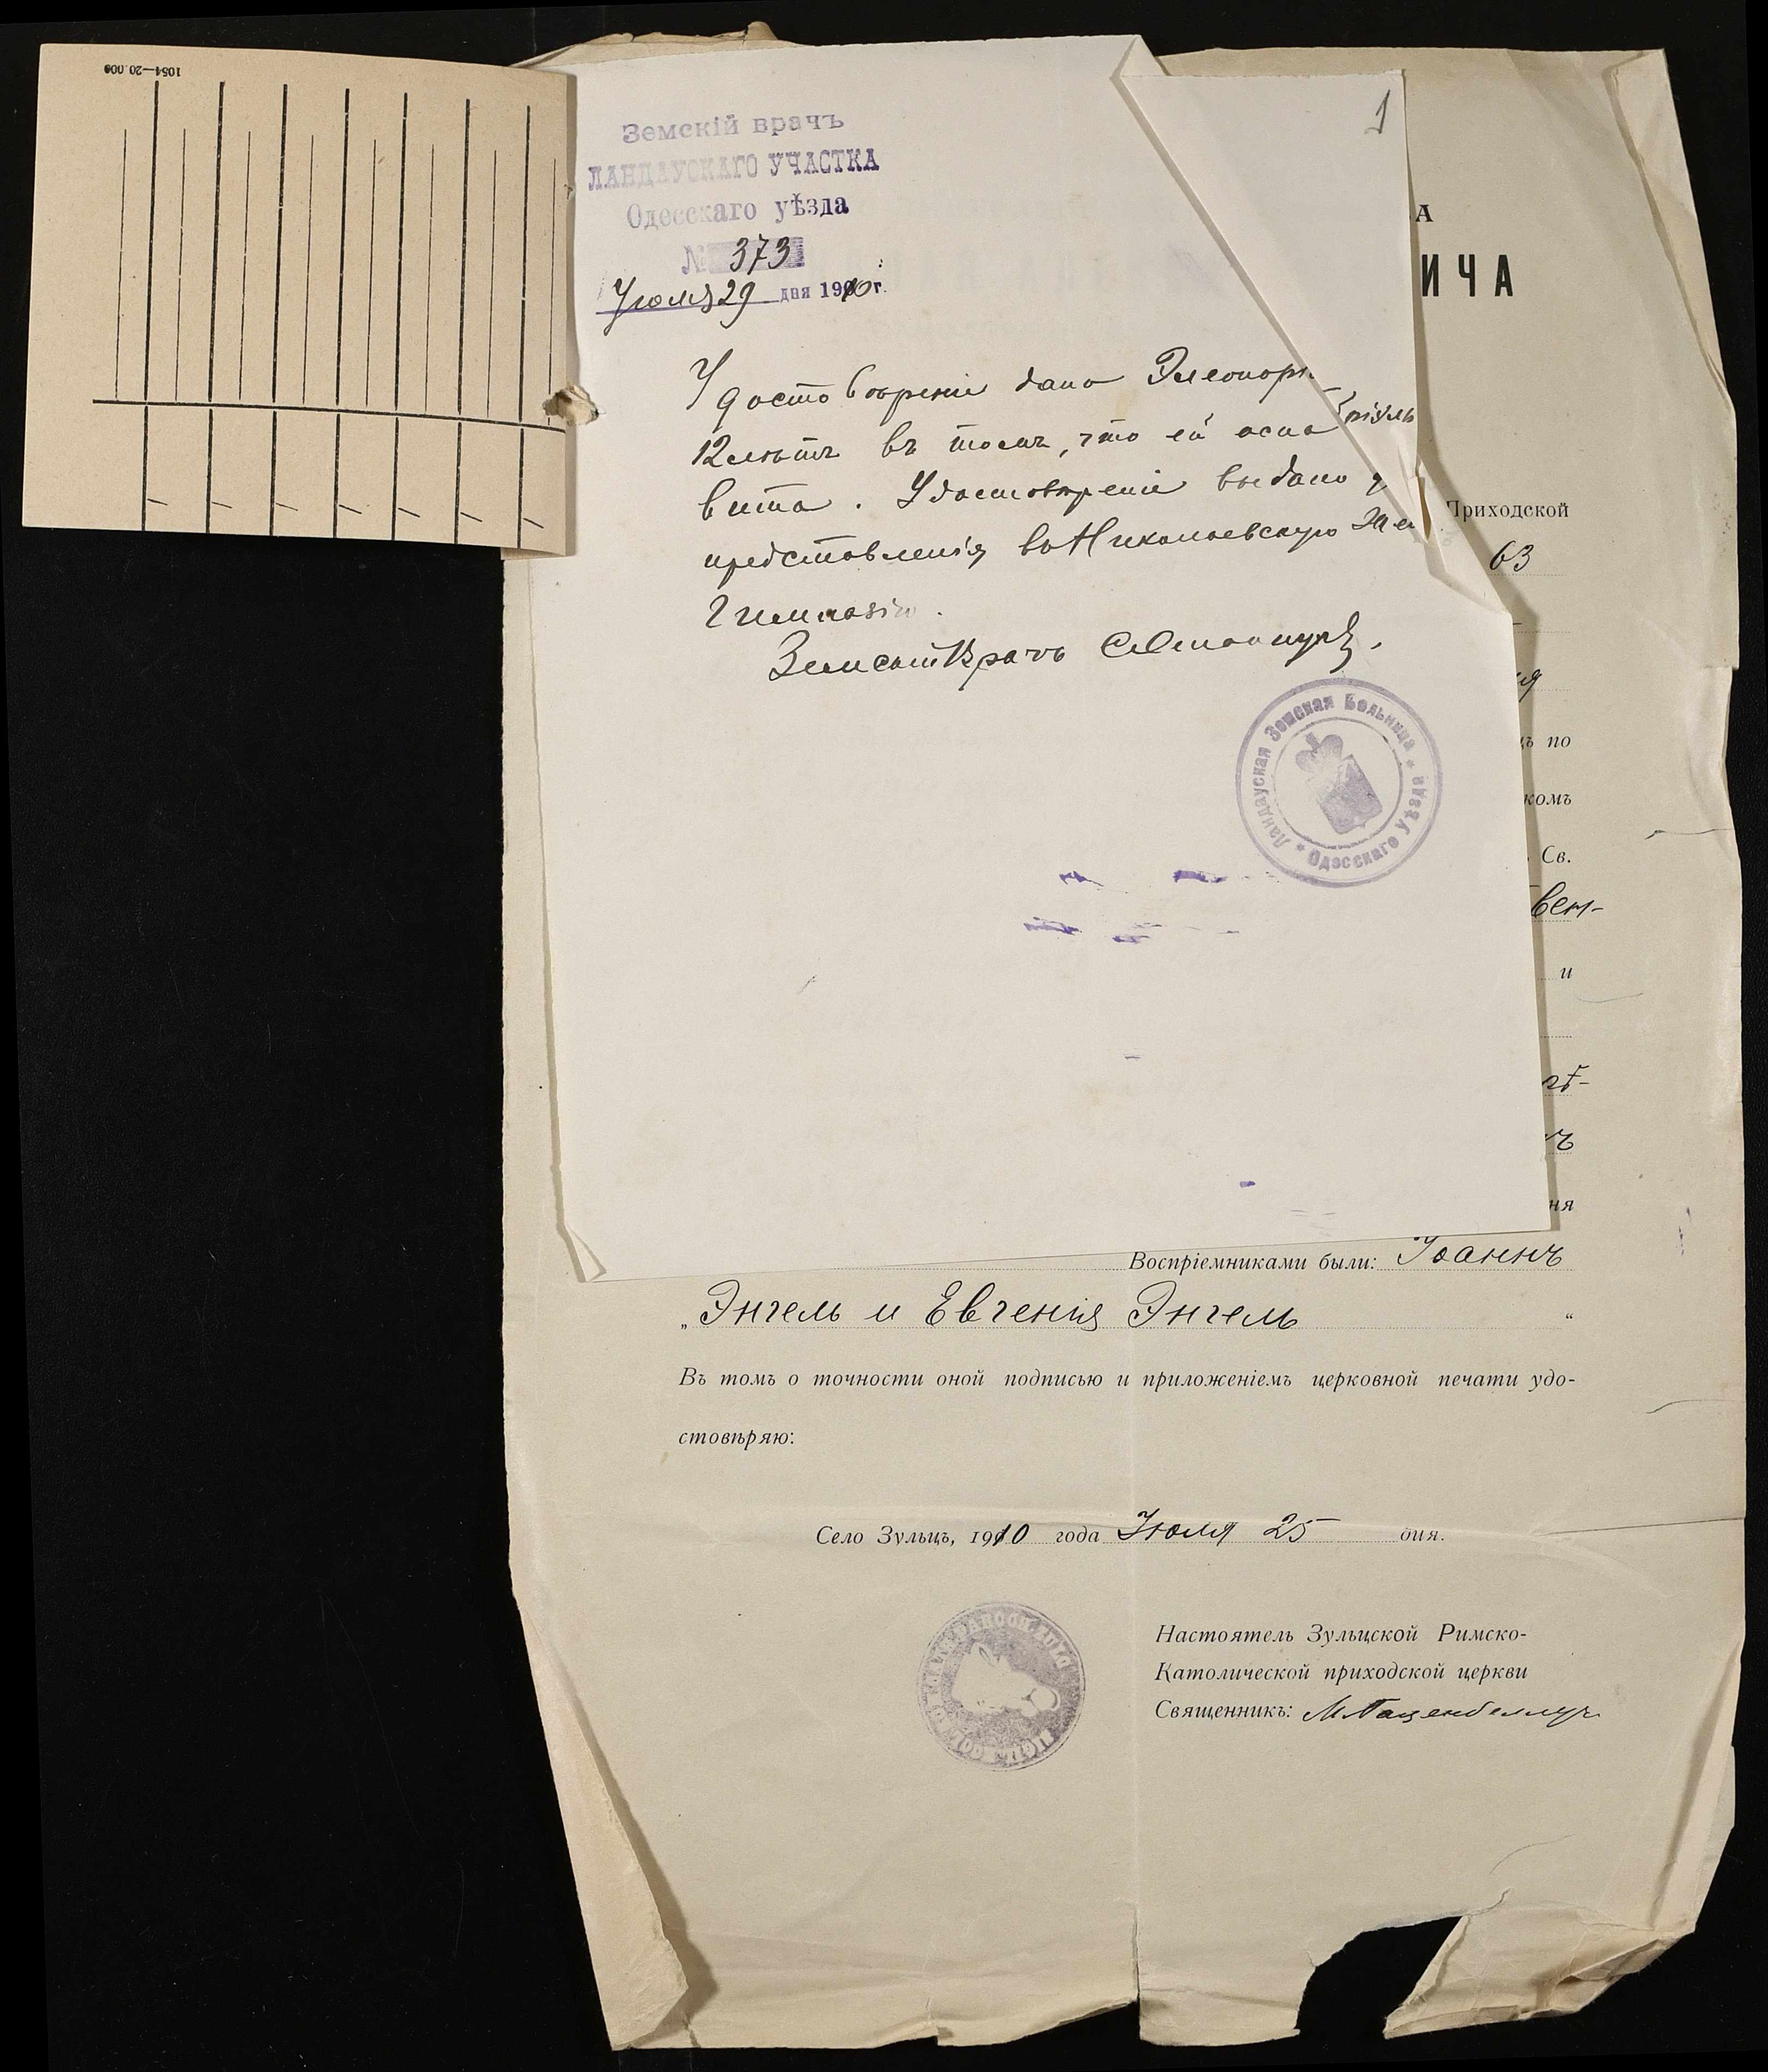 1054—20.000
1
Земскій врачъ
ЛАНДАУСКАГО УЧАСТКА
Одесскаго уѣзда
№ 373
Іюля 29 дня 1910 г.
Удостовѣреніе дано Элеонорѣ
12 лѣтъ въ томъ, что ей оспа
вита. Удостовѣреніе выдано
представленія въ Николаевскую
Гимназію.
Земскій Врачъ
Ландауская Земская Больница * Одесскаго Уѣзда *
А
ИЧА
Приходской
63
по
комъ
Св.
вен-
и
ня
Воспріемниками были: Іоаннъ
„Энгель и Евгенія Энгель “
Въ томъ о точности оной подписью и приложеніемъ церковной печати удо-
стовѣряю:
Село Зульцъ, 1910 года Іюля 25 дня.
Настоятель Зульцской Римско-
Католической приходской церкви
Священникъ: